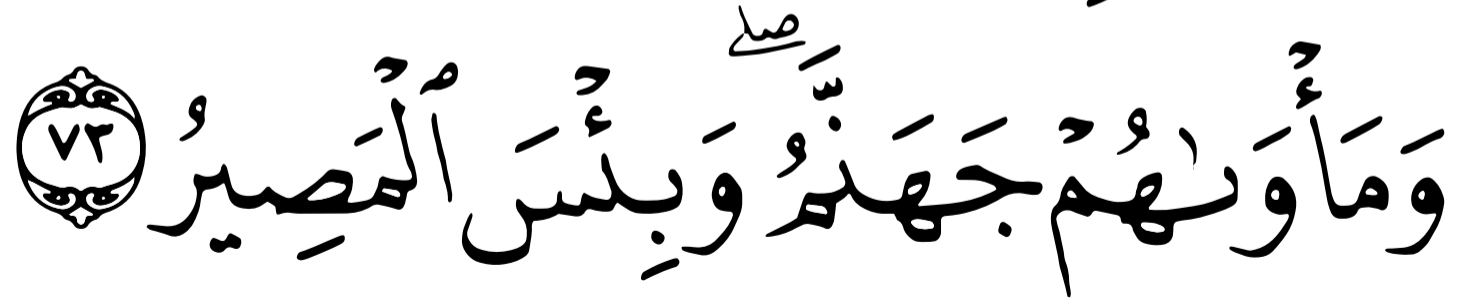 وَمَأۡوَىٰهُمۡ جَهَنَّمُۖ وَبِئۡسَ ٱلۡمَصِيرُ ٧٣